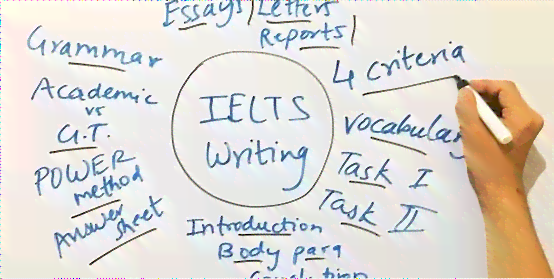 Essays| Letters
Reports|
Grammar
4 criteria
Academic
vs
G.T.
IELTS
Writing
vocabulary
POWER
method
Task I
Answer
sheet
Task II
Introduction
Body para